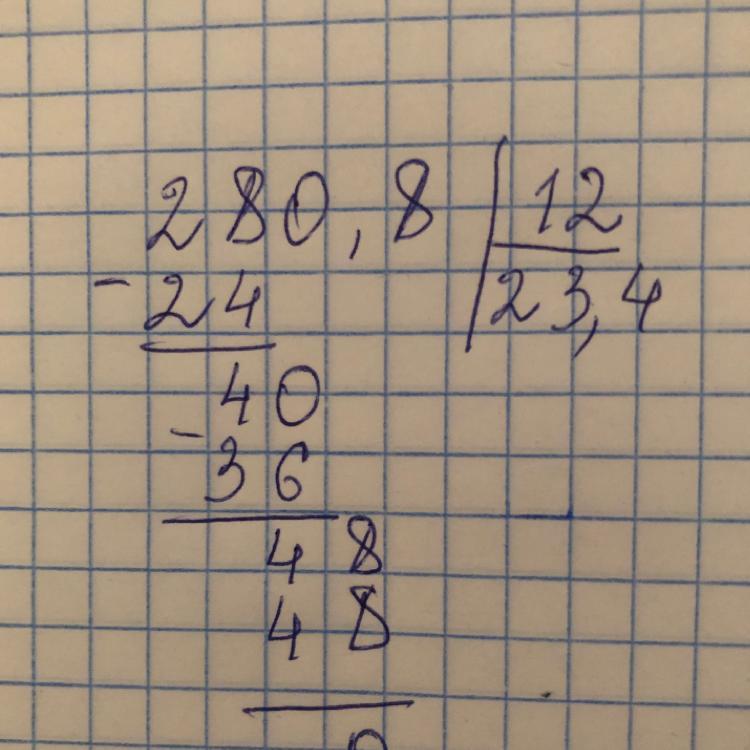 280,8 | 12
-24 | 23,4
40
-36
48
48
0